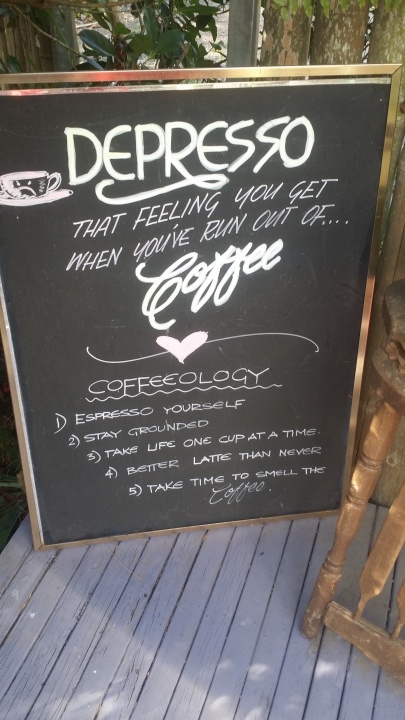 DEPRESSO
THAT FEELING YOU GET
WHEN YOU'VE RUN OUT OF....
Coffee
COFFEEOLOGY
1) ESPRESSO YOURSELF
2) STAY GROUNDED
3) TAKE LIFE ONE CUP AT A TIME.
4) BETTER LATTE THAN NEVER
5) TAKE TIME TO SMELL THE
Coffee.